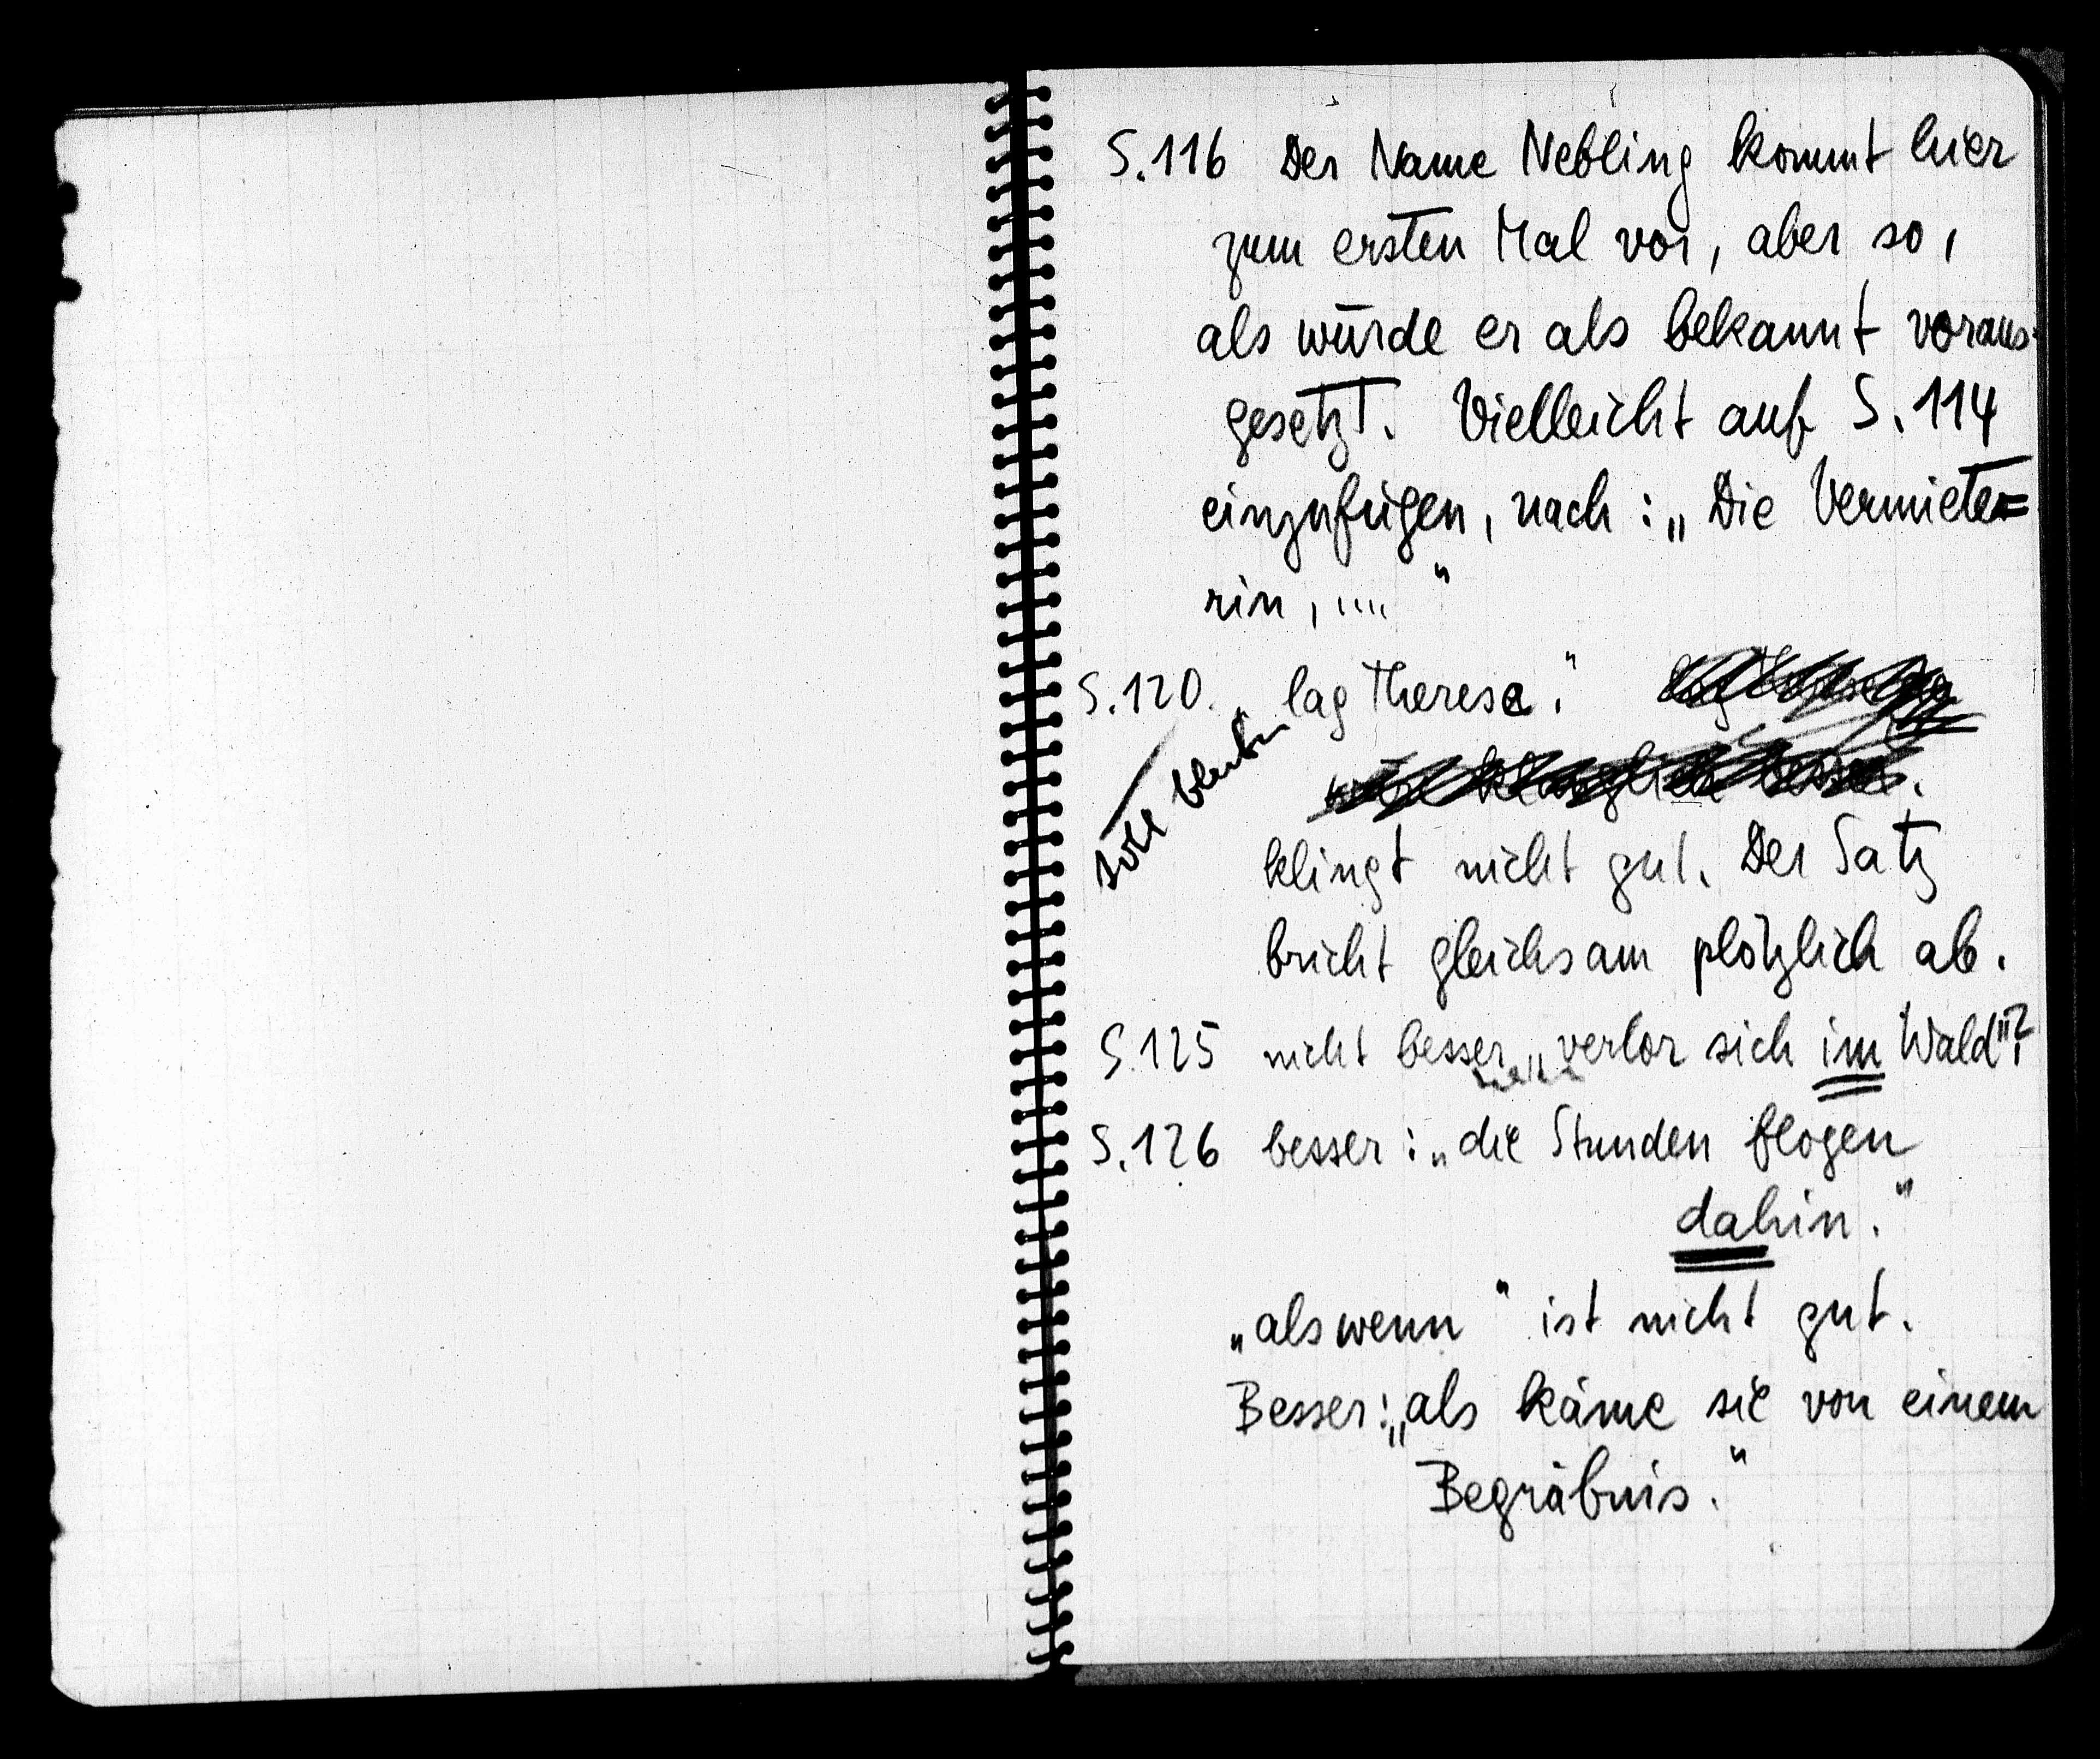 S.116 Der Name Nebling kommt hier
zum ersten Mal vor, aber so,
als würde er als bekannt voraus-
gesetzt. Vielleicht auf S.114
einzufügen, nach: „Die Vermiete=
rin, ...."
S.120. „lag Therese."
soll bleiben
klingt nicht gut. Der Satz
bricht gleichsam plötzlich ab.
S.125 nicht besser „verlor sich im Wald"?
S.126 besser: „die Stunden flogen
dahin."
„als wenn" ist nicht gut.
Besser: „als käme sie von einem
Begräbnis."